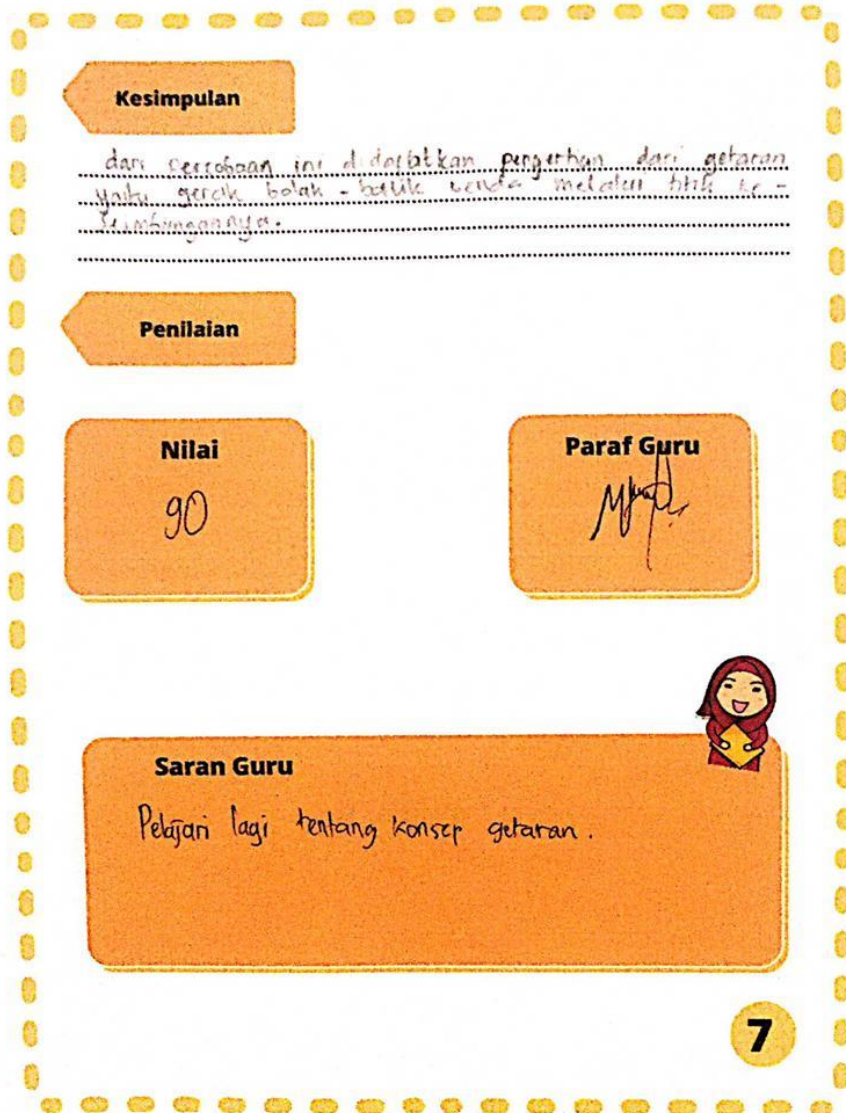 Kesimpulan
dari percobaan ini didapatkan pengertian dari getaran
yaitu gerak bolak-balik benda melalui titik ke-
seimbangannya.
Penilaian
Nilai
90
Paraf Guru
Saran Guru
Pelajari lagi tentang konsep getaran.
7